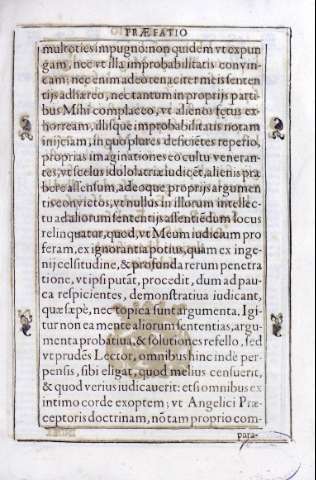 PRÆFATIO
multoties impugno: non quidem vt expun
gam, nec vt illa improbabilitatis convin
cam; nec enim adeo tenaciter meis senten
tijs adhæreo, nec tantum in proprijs parti
bus Mihi complaceo, vt alienos fętus ex
horream, illisque improbabilitatis notam
inijciam, in quo plures deficiẽtes reperio,
proprias imaginationes eo cultu veneran
tes, vt scelus idololatriæ iudicẽt, alienis præ
bere assensum, adeoque proprijs argumen
tis convictos, vt nullus in illorum intellec
tu ad aliorum sententijs assentiẽdum locus
relinquatur, quod, vt Meum iudicium pro
feram, ex ignorantia potius, quam ex inge
nij celsitudine, & profunda rerum penetra
tione, vt ipsi putãt, procedit, dum ad pau
ca respicientes, demonstratiua iudicant,
quæ sæpè, nec topica sunt argumenta. Igi
tur non ea mente aliorum sententias, argu
menta probatiua, & solutiones refello, sed
vt prudẽs Lector, omnibus hinc inde per-
pensis, sibi eligat, quod melius censuerit,
& quod verius iudicauerit: etsi omnibus ex
intimo corde exoptem; vt Angelici Præ
ceptoris doctrinam, nõ tam proprio com-
para-